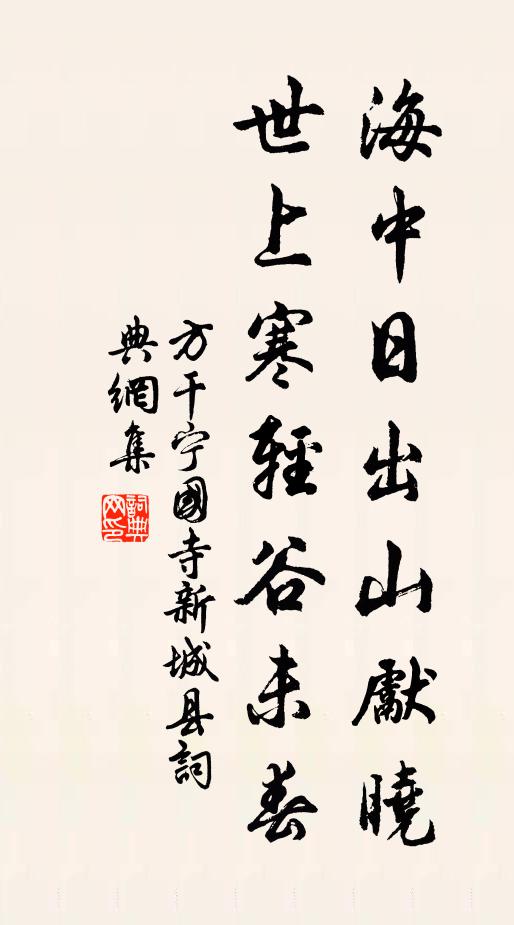 海中日出山獻曉
世上寒輕谷未春
方干宁國寺新城县詞
典網集
詞典网印